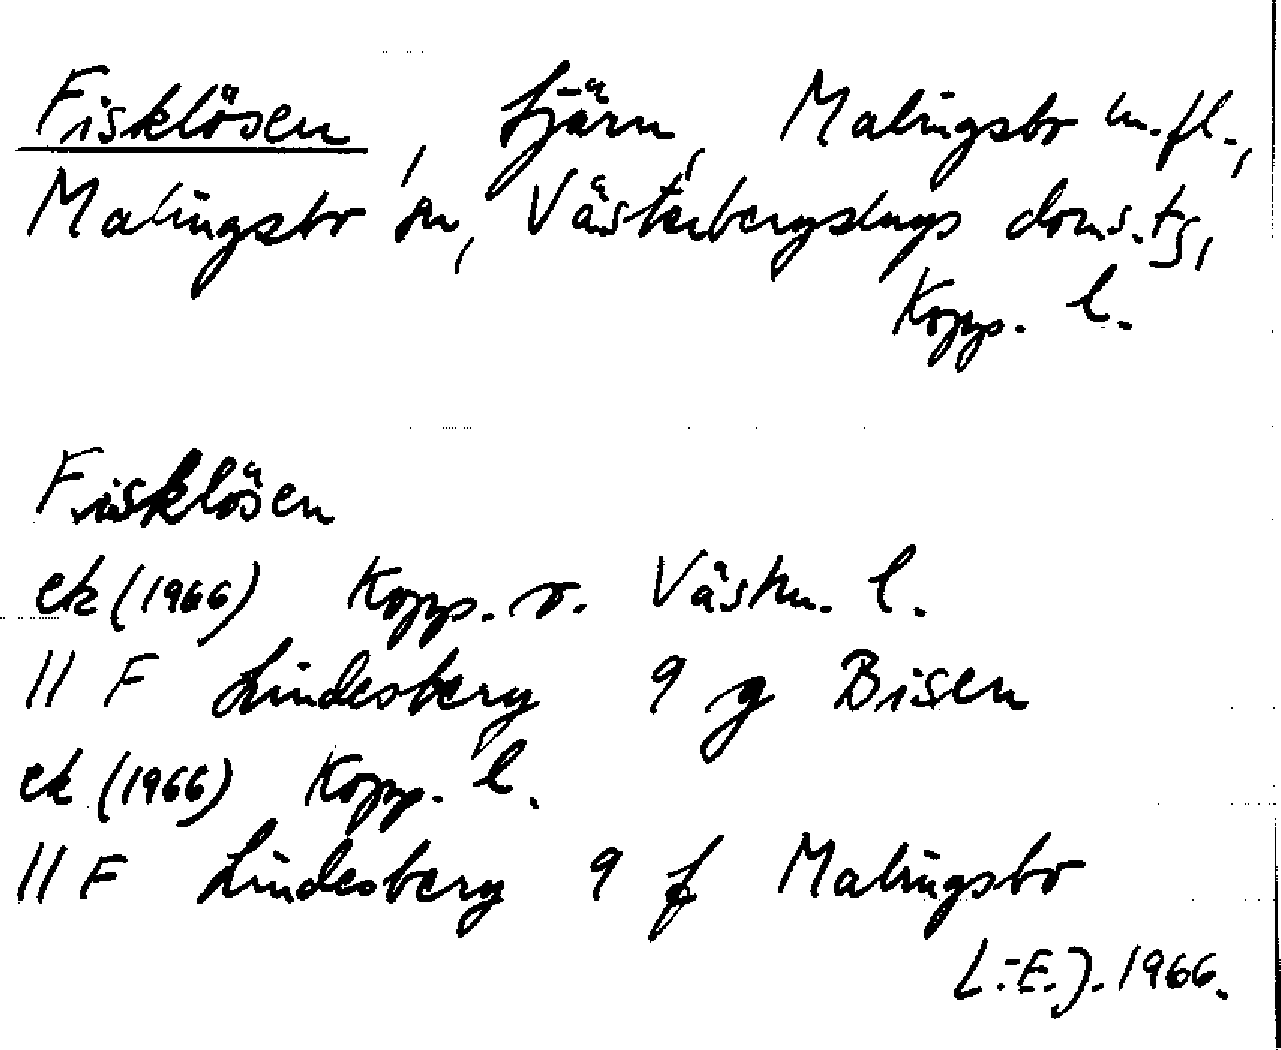 Fisklösen, tjärn, Malingsbo m.fl.,
Malingsbo sn, Västerbergslags doms.tg,
Kopp. l.
Fisklösen
ek (1966) Kopp. o. Västm. l.
11 F Lindesberg 9 g Bisen
ek (1966) Kopp. l.
11 F Lindesberg 9 f Malingsbo
L.-E.J. 1966.